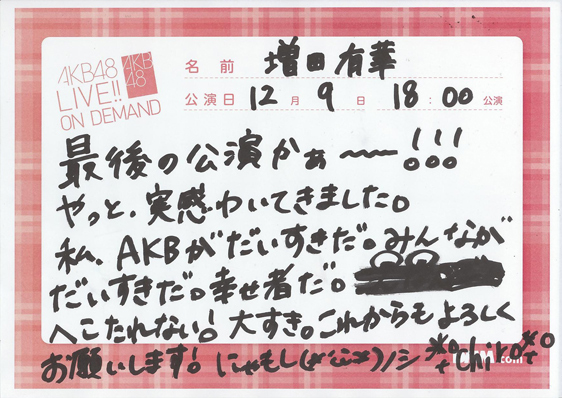 AKB48
LIVE!!
ON DEMAND
AKB
48
名前 増田有華
公演日 12月 9日 18:00公演
最後の公演かぁ〜〜!!!
やっと、実感わいてきました。
私、AKBがだいすきだ。みんなが
だいすきだ。幸せ者だ。
へこたれない!大すき。これからもよろしく
お願いします!にゃもし
chiro
.com